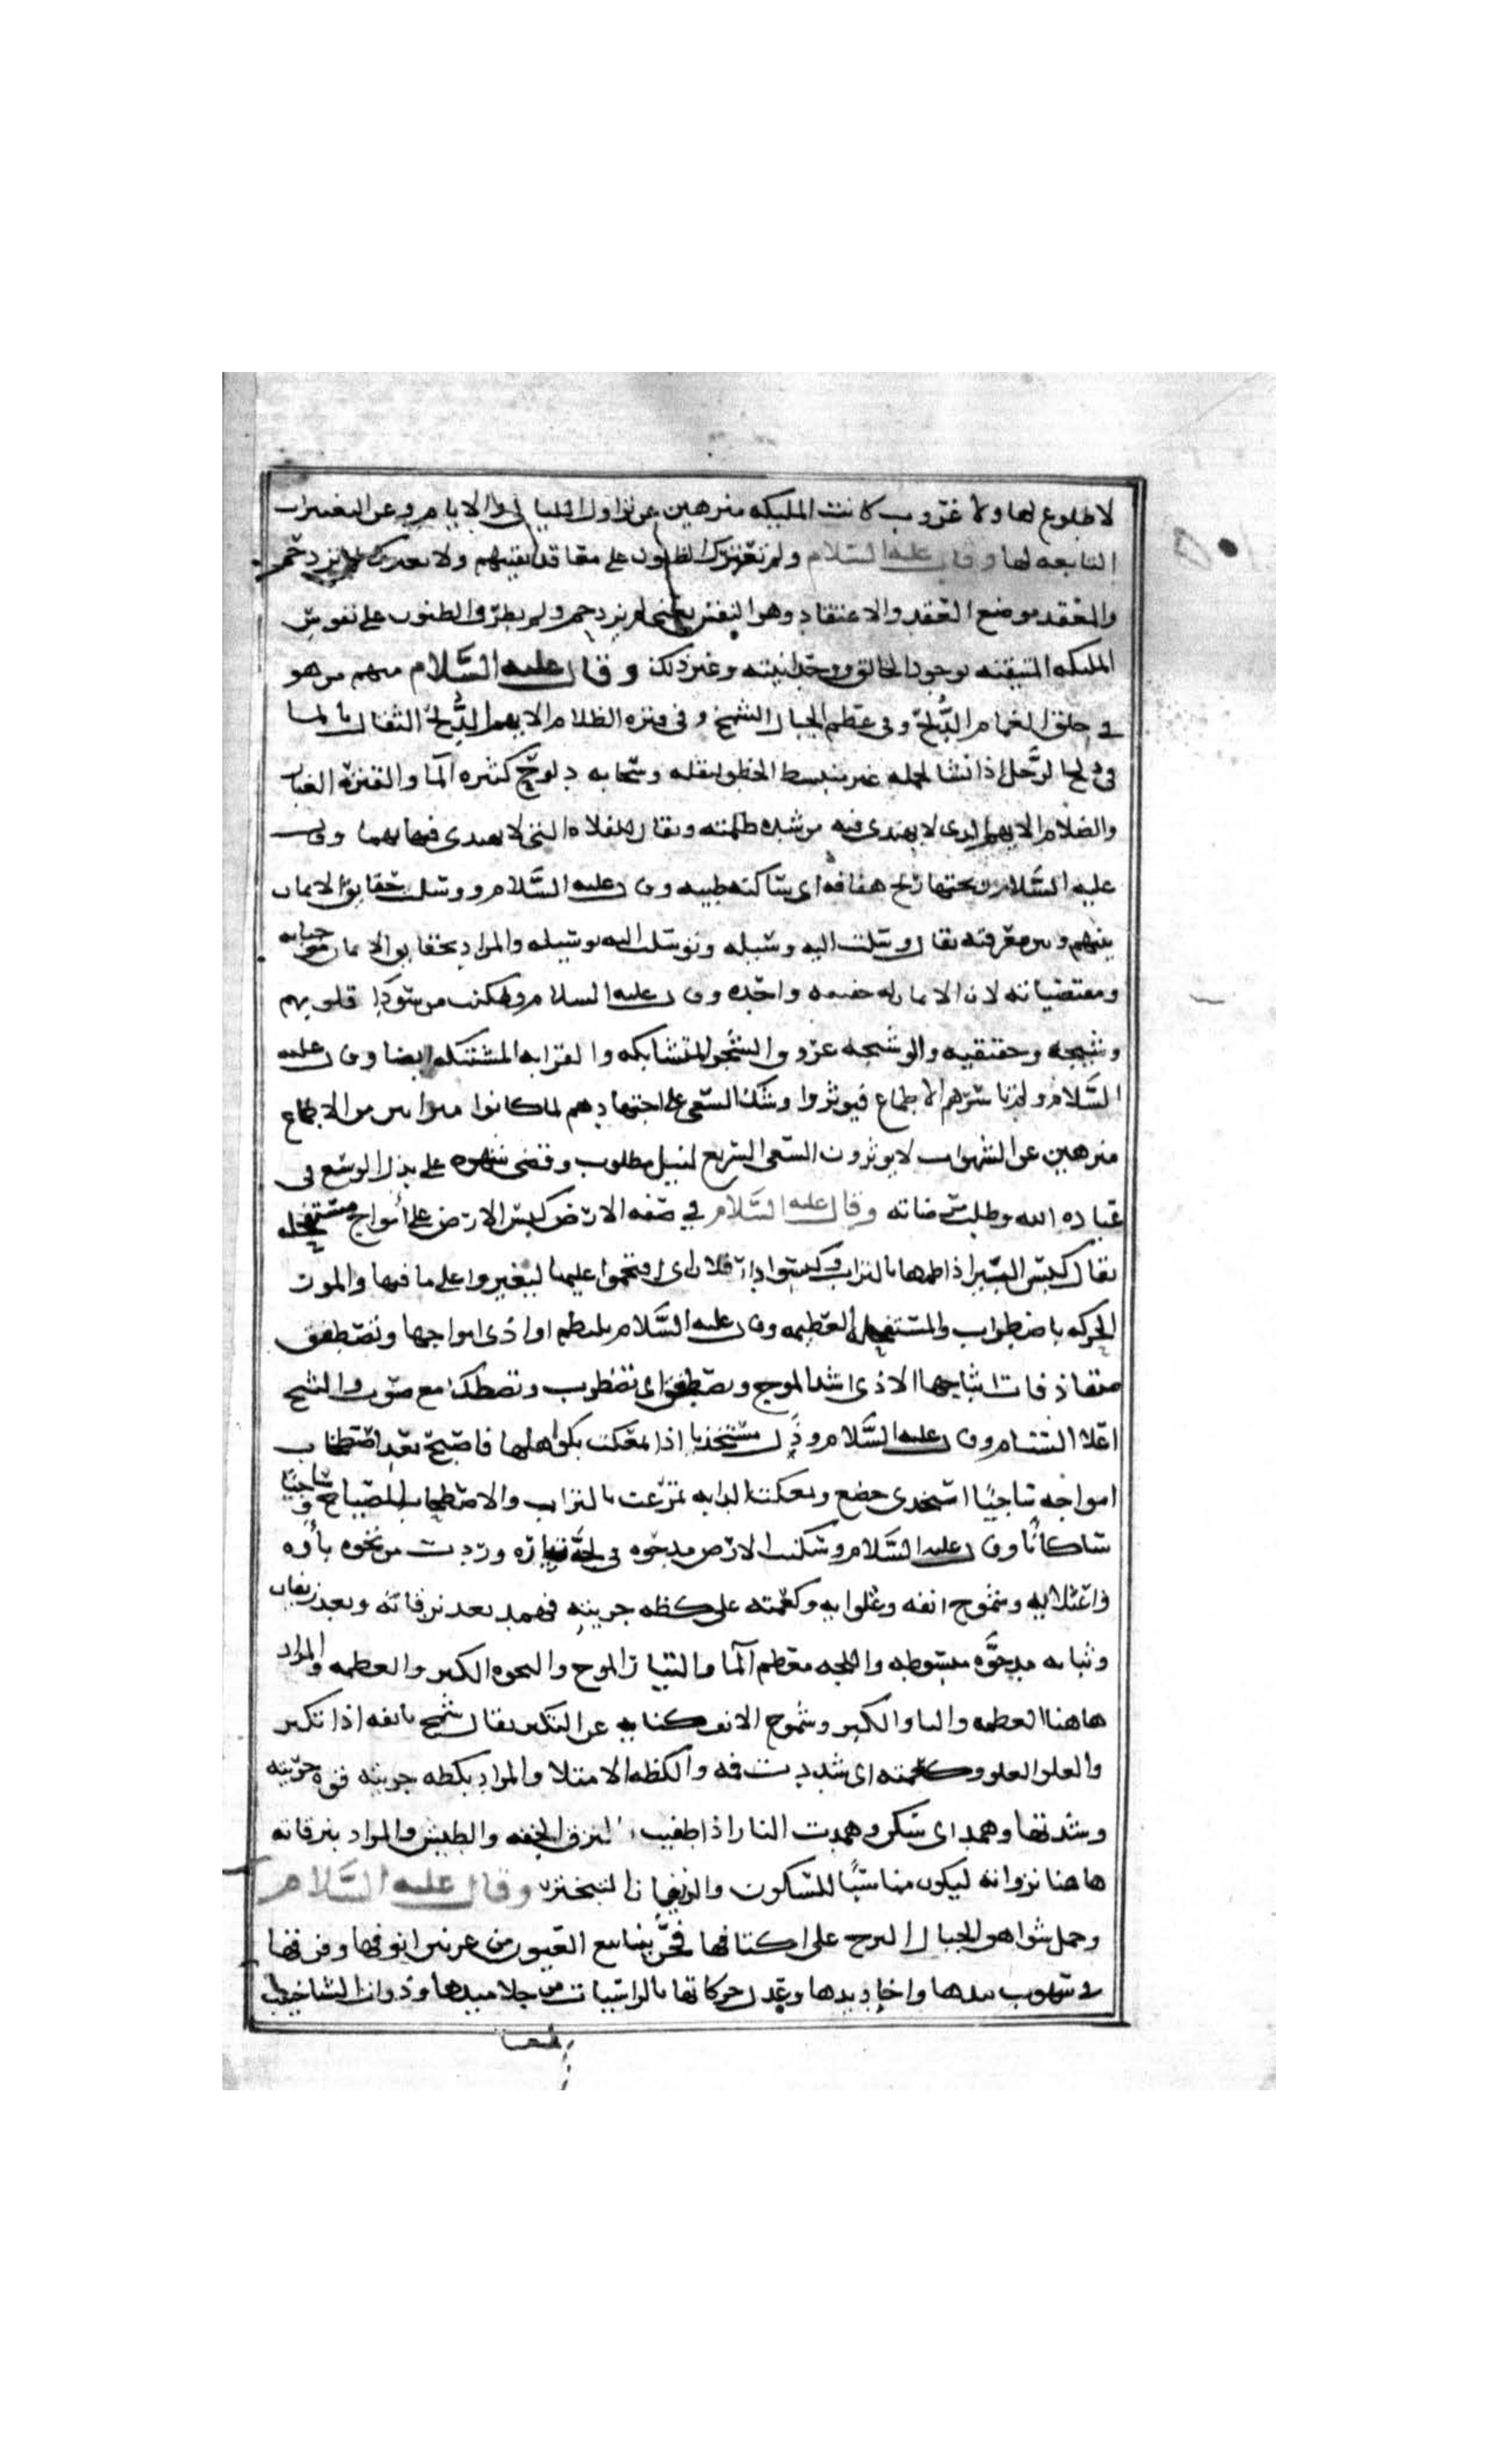 لا طلوع لها ولا غروب كانت المليكه منزهين عن تزاول الليالي والايام وعن التغيرات
التابعه لها وقال عليه السلام ولم تعترك الظنون على معاقد يقينهم ولا تعترك لم تزدحم
والمعقد موضع العقد والاعتقاد وهو النفس يعني لم يزدحم ولم يطرق الظنون على نفوس
المليكه المتيقنه لوجود الخالق ووحدانيته وغير ذلك وقال عليه السلام منهم من هو
في خلق الغمام الدلح وفي عظم الجبال الشمخ وفي قترة الظلام الايهم الدلح الثقال بالما
اذا مشا بحمله غير منبسط الخطو لثقله وسحابه دلوح كثيره الما والقترة الغبار
والظلام الايهم الذي لا يهتدى فيه من شده ظلمته ويقال للفلاه التي لا يهتدى فيها يهما وقال
عليه السلام تحتها ريح هفافه اي ساكنه طيبه وقال عليه السلام ووسلت حقايق الايمان
بينهم وبين معرفته يقال وسلت اليه وسيله وتوسلت اليه بوسيله والمراد بحقايق الايمان
ومقتضياته لان الايمان له حقيقه واحده وقال عليه السلام وتمكنت من سويدا قلوبهم
وشيجه وحقيقيه والوشيجه عروق الشجر المتشابكه والقرابه المشتبكه ايضا وقال عليه
السلام ولم تاسرهم الاطماع فيوثروا وشك السعي على اجتهادهم لما كانوا مبرايين من الاطماع
منزهين عن الشهوات لا يوثرون السعي السريع لنيل مطلوب وقضى شهوه على بذل الوسع في
عباده الله وطلب مرضاته وقال عليه السلام في صفه الارض كبس الارض على امواج مستفحله
يقال كبس البير اذا طمها بالتراب وكبسوا دار فلان اي اقتحموا عليها ليغيروا على ما فيها والمور
الحركه باضطراب والمستفحله العظيمه وقال عليه السلام يلتطم اواذي امواجها وتصطفق
متقاذفات اثباجها الاذي اشد الموج وتصطفق اي تضطرب وتصطك مع صوت والثبج
اعلا السنام وقال عليه السلام وذل مستخذيا اذا تمعكت بكواهلها فاصبح بعد اصطخاب
امواجه ساجيا استخذى خضع وتمعكت الدابه تمرغت بالتراب والاصطخاب الصياح وساجيا
ساكنا وقال عليه السلام وسكنت الارض مدحوه في لجه تياره وردت من نخوه بأوه
واعتلايه وشموخ انفه وغلوايه وكعمته على كظه جريته فهمد بعد نزقاته وبعد زيفان
وثباته مدحوه مبسوطه واللجه معظم الما والتيار الموج والنخوه الكبر والعظمه والمراد
هاهنا العظمه والباو الكبر وشموخ الانف كنايه عن التكبر يقال شمخ بانفه اذا تكبر
والغلو العلو وكعمته اي شددت فمه والكظه الامتلا والمراد بكظه جريته قوه جريته
وشدتها وهمد اي سكن وهمدت النار اذا طفيت النزق الخفه والطيش والمراد بنزقاته
هاهنا نزواته ليكون مناسبا للسكون والزيفان التبختر وقال عليه السلام
وحمل شواهق الجبال البذخ على اكتافها فجر ينابيع العيون من عرنين انوفها وفرقها
في سهوب بيدها واخاديدها وعدل حركاتها بالراسيات من جلاميدها وذوات الشناخيب